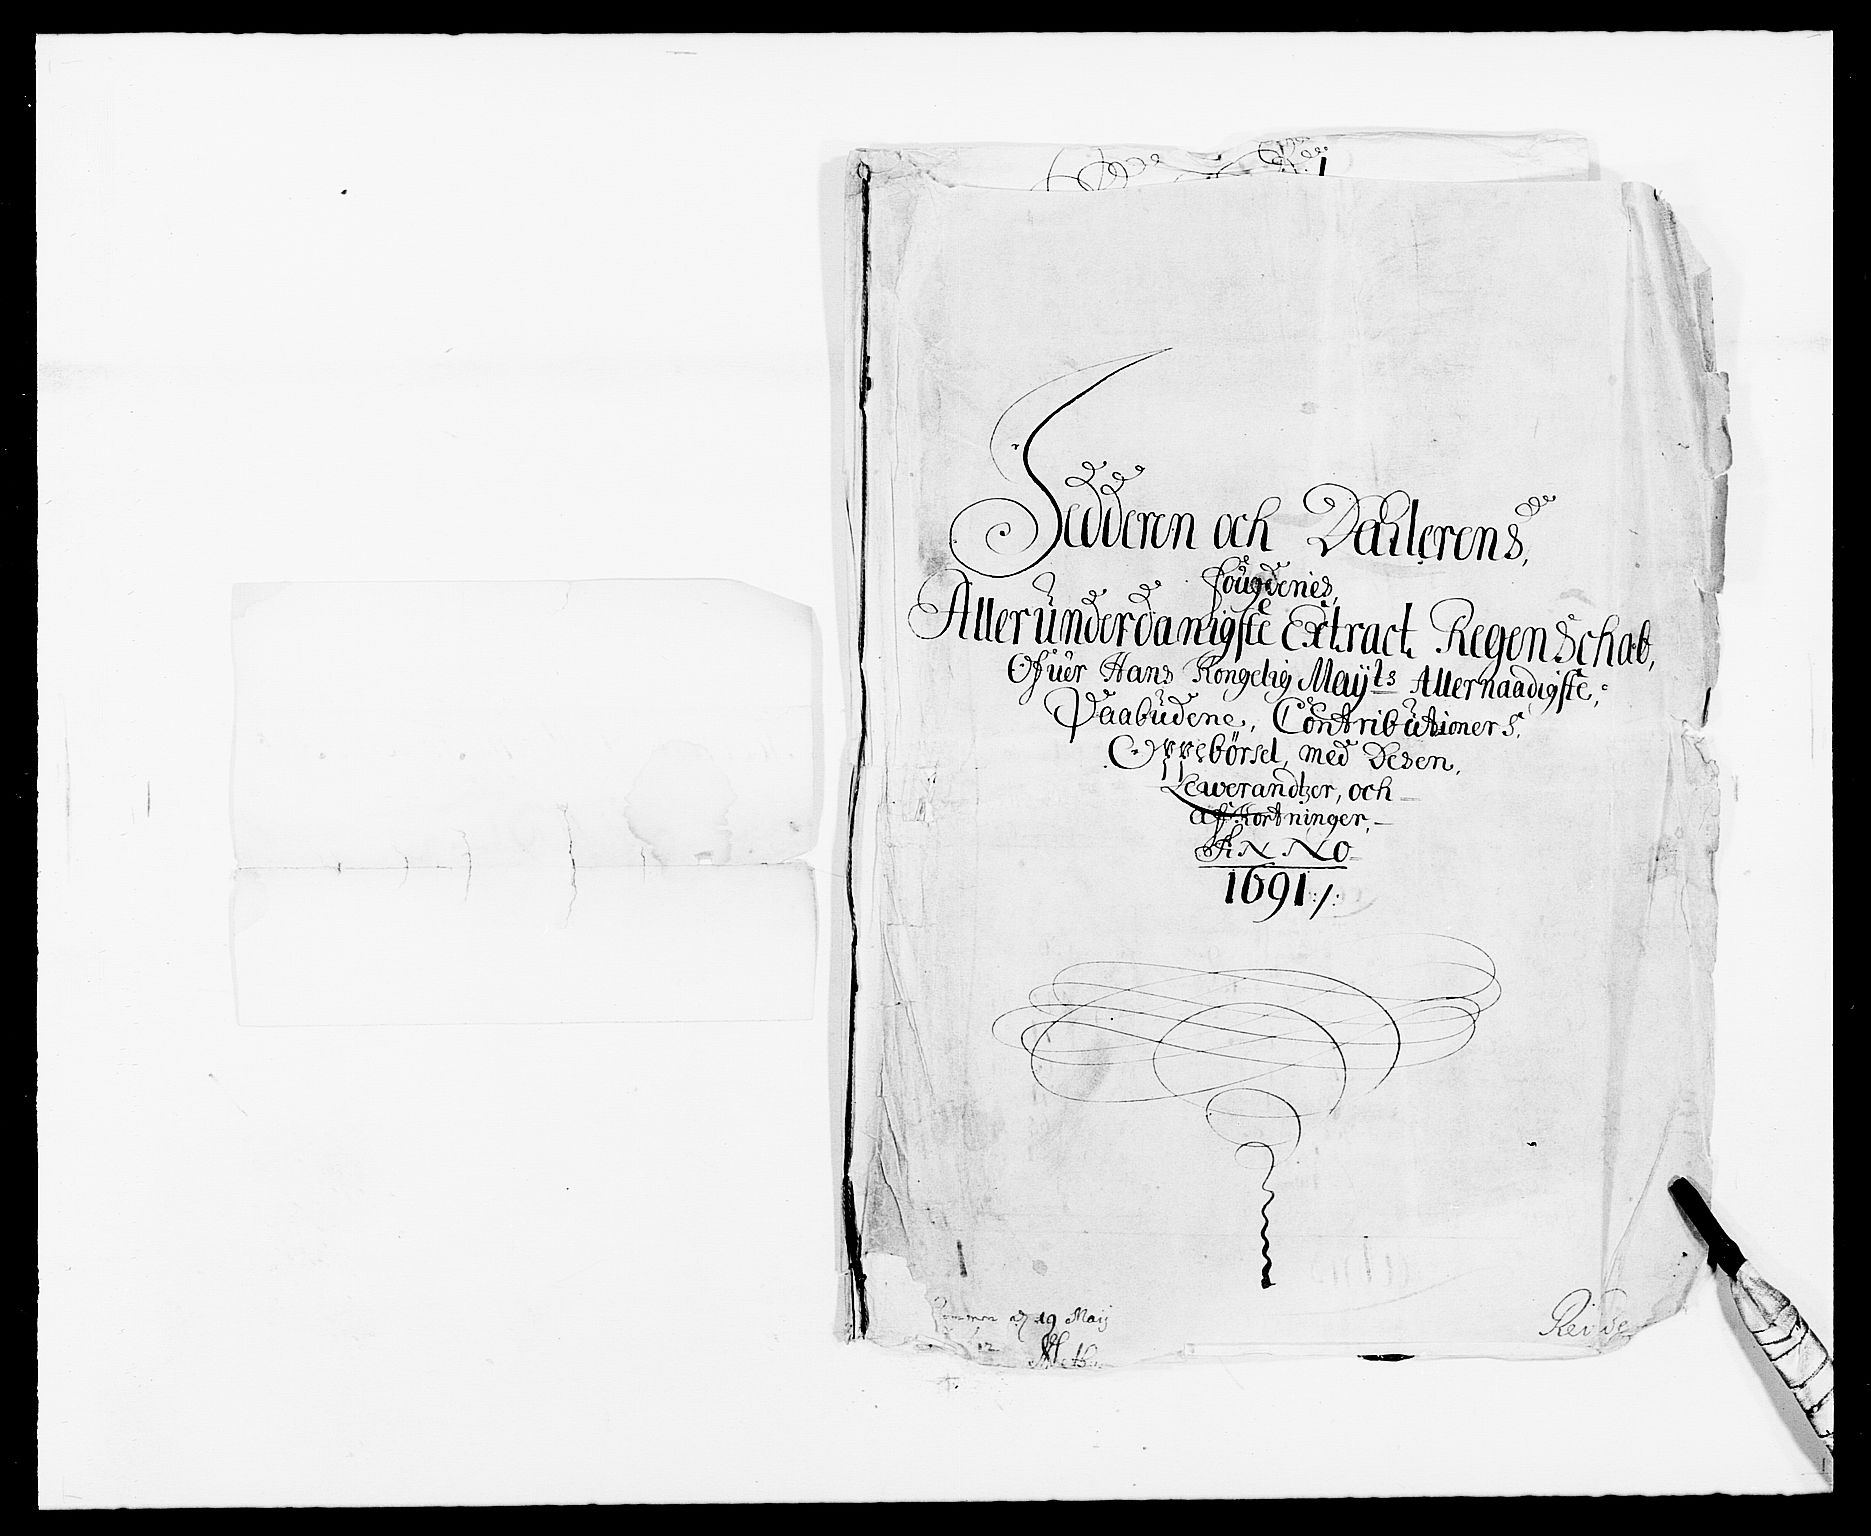 Jedderen och Dahlerens,
fougderies,
Alleründerdanigste Extract Regenschab,
Ofüer Hans Kongelig Mayts Allernaadigste,
Paabüdene, Contributioners,
Oppebörsel, med Desen,
Lewerandtzer, och
afkortninger,
ANNO
1691./.
19 Maij
12